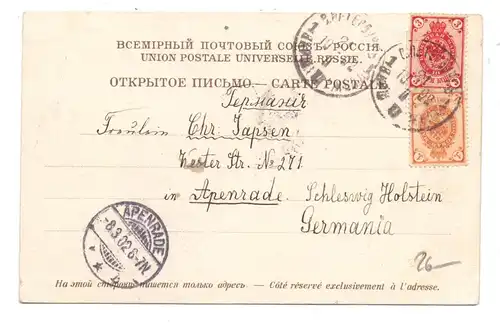 ВСЕМІРНЫЙ ПОЧТОВЫЙ СОЮЗЪ. РОССІЯ.
UNION POSTALE UNIVERSELLE. RUSSIE.
ОТКРЫТОЕ ПИСЬМО. — CARTE POSTALE.
Германія
Fräulein Chr. Japsen
Wester Str. № 271
in Apenrade. Schleswig Holstein
Germania
APENRADE
-8.3.02.6-7N
26-
На этой сторонѣ пишется только адресъ. — Côté réservé exclusivement à l'adresse.